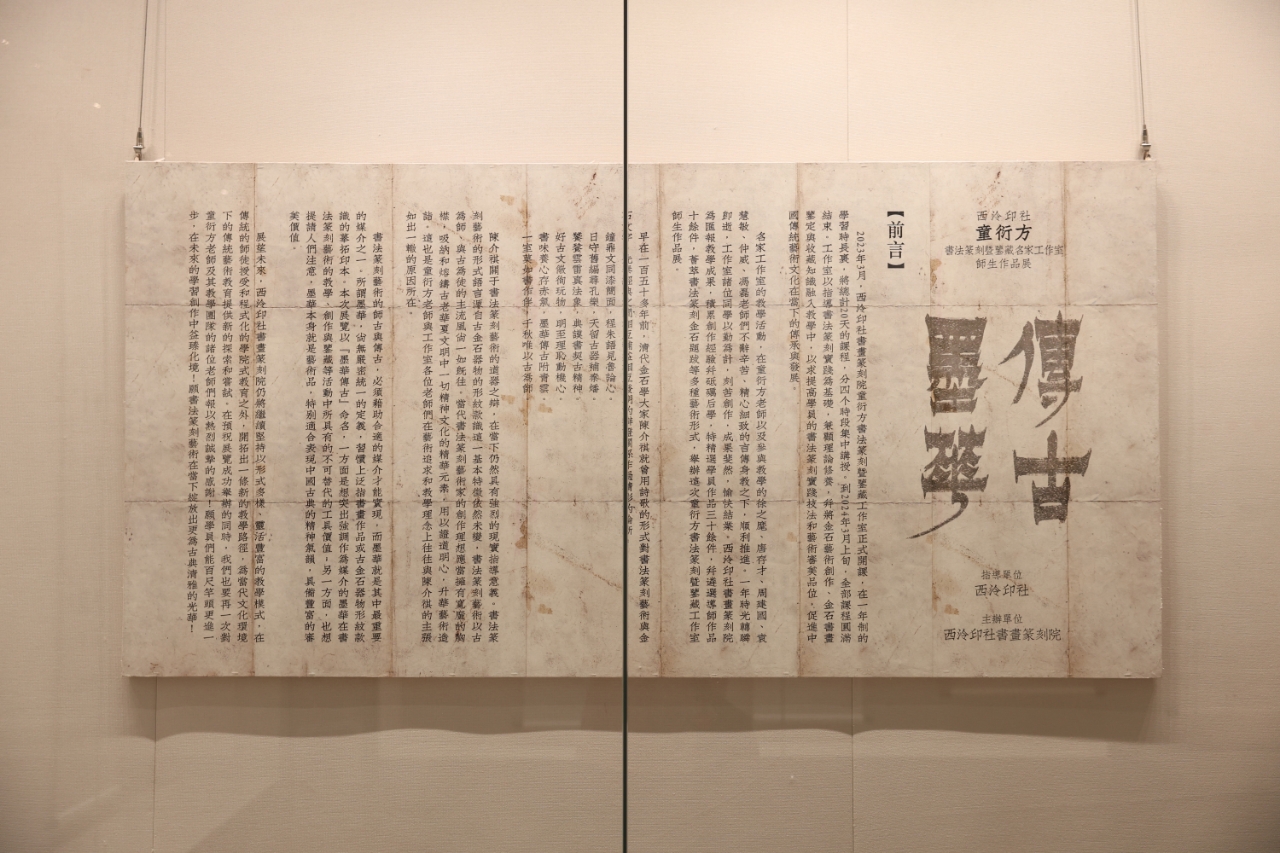 西泠印社
童衍方
書法篆刻暨鑒藏名家工作室
師生作品展
傳古
墨華
指導單位
西泠印社
主辦單位
西泠印社書畫篆刻院
【前言】
2023年3月，西泠印社書畫篆刻院童衍方書法篆刻暨鑒藏工作室正式開課，在一年制的
學習時長裏，將總計20天的課程，分四個時段集中講授，到2024年3月上旬，全部課程圓滿
結束。工作室以指導書法篆刻實踐為基礎，兼顧理論修養，并將金石藝術創作、金石書畫
鑒定與收藏知識融入教學中，以求提高學員的書法篆刻實踐技法和藝術審美品位，促進中
國傳統藝術文化在當下的傳承與發展。
名家工作室的教學活動，在童衍方老師以及參與教學的徐之麾、唐存才、周建國、袁
慧敏、仲威、馮磊老師們不辭辛苦、精心細致的言傳身教之下，順利推進。一年時光轉瞬
即逝，工作室諸位同學以勤為計，刻苦創作，成果斐然，愉快結業。西泠印社書畫篆刻院
為匯報教學成果，積累創作經驗并砥礪后學，特精選學員作品三十餘件，并遴選導師作品
十餘件，薈萃書法篆刻金石題跋等多種藝術形式，舉辦這次童衍方書法篆刻暨鑒藏工作室
師生作品展。
早在一百五十多年前，清代金石學大家陳介祺就曾用詩歌的形式對書法篆刻藝術與金
鐘鼎文同漆簡面，程朱語見魯論心。
日守舊編尋孔樂，天留古器補秦燔。
饕餮雲雷裏法象，典謨書契古精神。
好古文微徇玩物，明至理恥動機心。
書味養心存赤氣，墨華傳古附青雲。
一室莫如書作伴，千秋唯以古為師。
陳介祺關于書法篆刻藝術的道器之辯，在當下仍然具有強烈的現實指導意義。書法篆
刻藝術的形式語言源自古金石器物的形紋款識這一基本特徵依然未變，書法篆刻藝術以古
為師、與古為徒的主流風尚一如既往。當代書法篆刻藝術家的創作理想應當擁有寬廣的胸
襟，吸納和熔鑄古老華夏文明中一切精神文化的精華元素，用以證道明心，升華藝術造
詣，這也是童衍方老師與工作室各位老師們在藝術追求和教學理念上往往與陳介祺的主張
如出一轍的原因所在。
書法篆刻藝術的師古與傳古，必須藉助合適的媒介才能實現，而墨華就是其中最重要
的媒介之一。所謂墨華，尚無嚴密統一的定義，習慣上泛指書畫作品或古金石器物形紋款
識的摹拓印本。本次展覽以「墨華傳古」命名，一方面是想突出強調作為媒介的墨華在書
法篆刻藝術的教學、創作與鑒藏等活動中所具有的不可替代的工具價值，另一方面，也想
提請人們注意，墨華本身就是藝術品，特別適合表現中國古典的精神氣韻，具備豐富的審
美價值。
展望未來，西泠印社書畫篆刻院仍將繼續堅持以形式多樣、靈活豐富的教學模式，在
傳統的師徒授受和程式化的學院式教育之外，開拓出一條新的教學路徑，為當代文化環境
下的傳統藝術教育提供新的探索和嘗試。在預祝展覽成功舉辦的同時，我們也要再一次對
童衍方老師及其教學團隊的諸位老師們報以熱烈誠摯的感謝！願學員們能百尺竿頭更進一
步，在未來的學習創作中益臻化境！願書法篆刻藝術在當下綻放出更為古典清雅的光華！